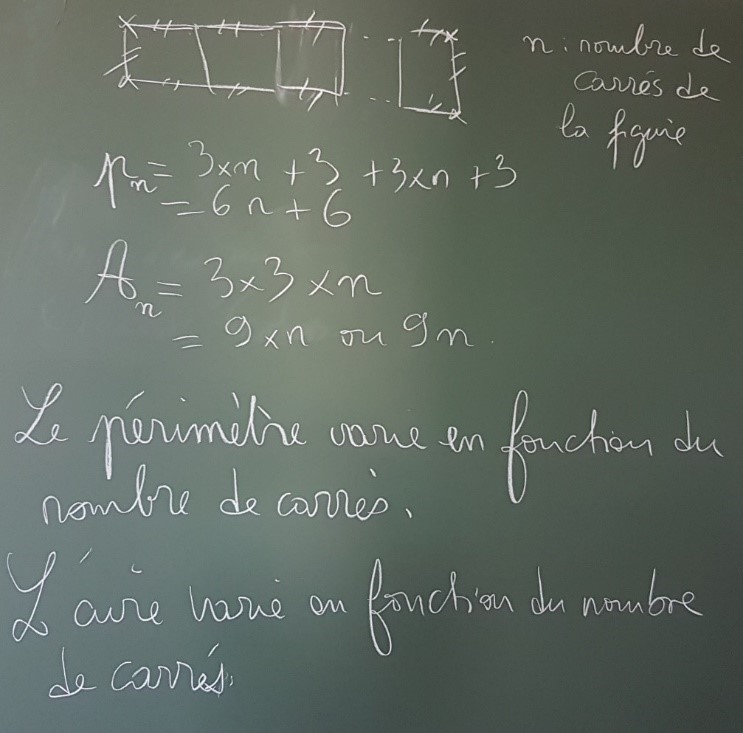 n : nombre de
carrés de
la figure
pn = 3×n + 3 + 3×n + 3
= 6n + 6
An = 3×3×n
= 9×n ou 9n.
Le périmètre varie en fonction du
nombre de carrés.
L'aire varie en fonction du nombre
de carrés.